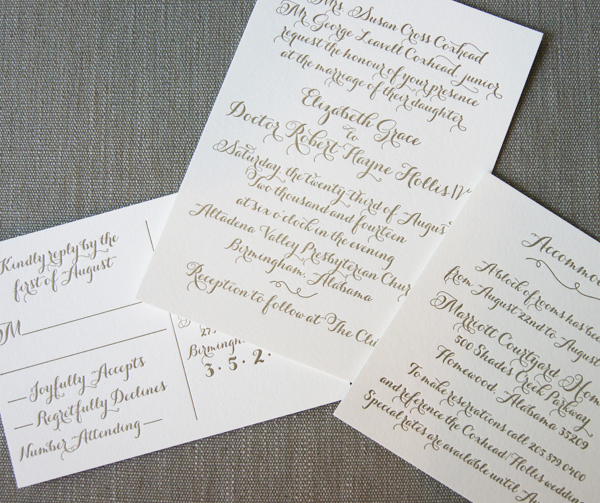 Mrs. Susan Cross Coxhead
Mr. George Leavell Coxhead, junior
request the honour of your presence
at the marriage of their daughter
Elizabeth Grace
to
Doctor Robert Hayne Hollis IV
Saturday, the twenty third of Augus
Two thousand and fourteen
at six o'clock in the evening
Altadena Valley Presbyterian Chur
Birmingham, Alabama
Reception to follow at The Clu
Kindly reply by the
first of August
M
Joyfully Accepts
Regretfully Declines
Number Attending
Birming
3 · 5 · 2 ·
Accommo
A block of rooms has bee
from August 22nd to August
Marriott Courtyard Hom
500 Shades Creek Parkway
Homewood, Alabama 35209
To make reservations call 205 879 0400
and reference the Coxhead/Hollis wedding
Special rates are available until